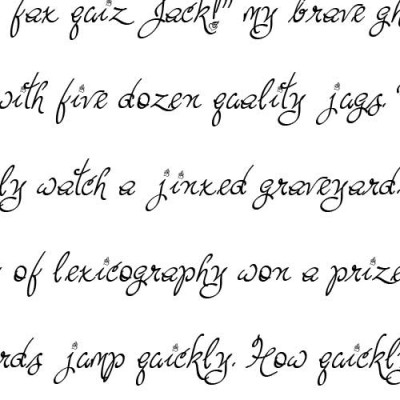 fax quiz Jack!" my brave gh
with five dozen quality jugs."
ly watch a jinxed graveyard.
of lexicography won a prize
rds jump quickly. How quickly